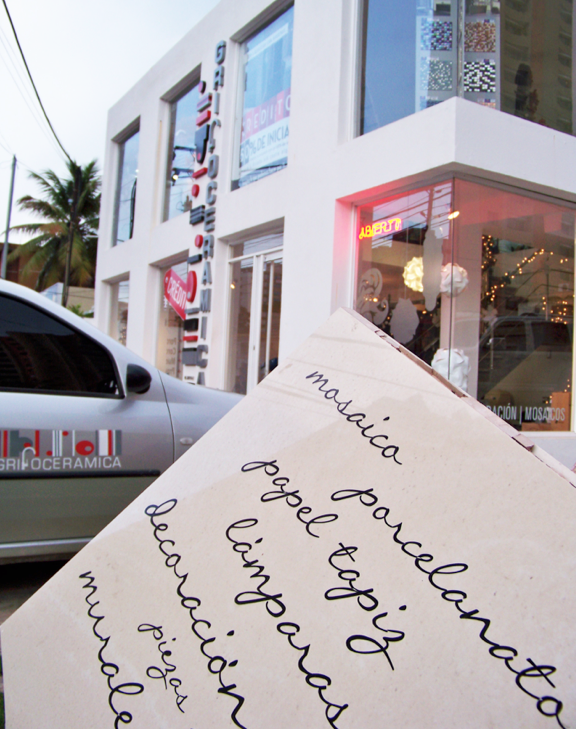 GRIFOCERAMICA
CREDITO
% DE INICIA
ABIERTO
CREDIT
RACIÓN | MOSAICOS
GRIFOCERAMICA
mosaico
porcelanato
papel tapiz
lámparas
decoración
piezas
murale